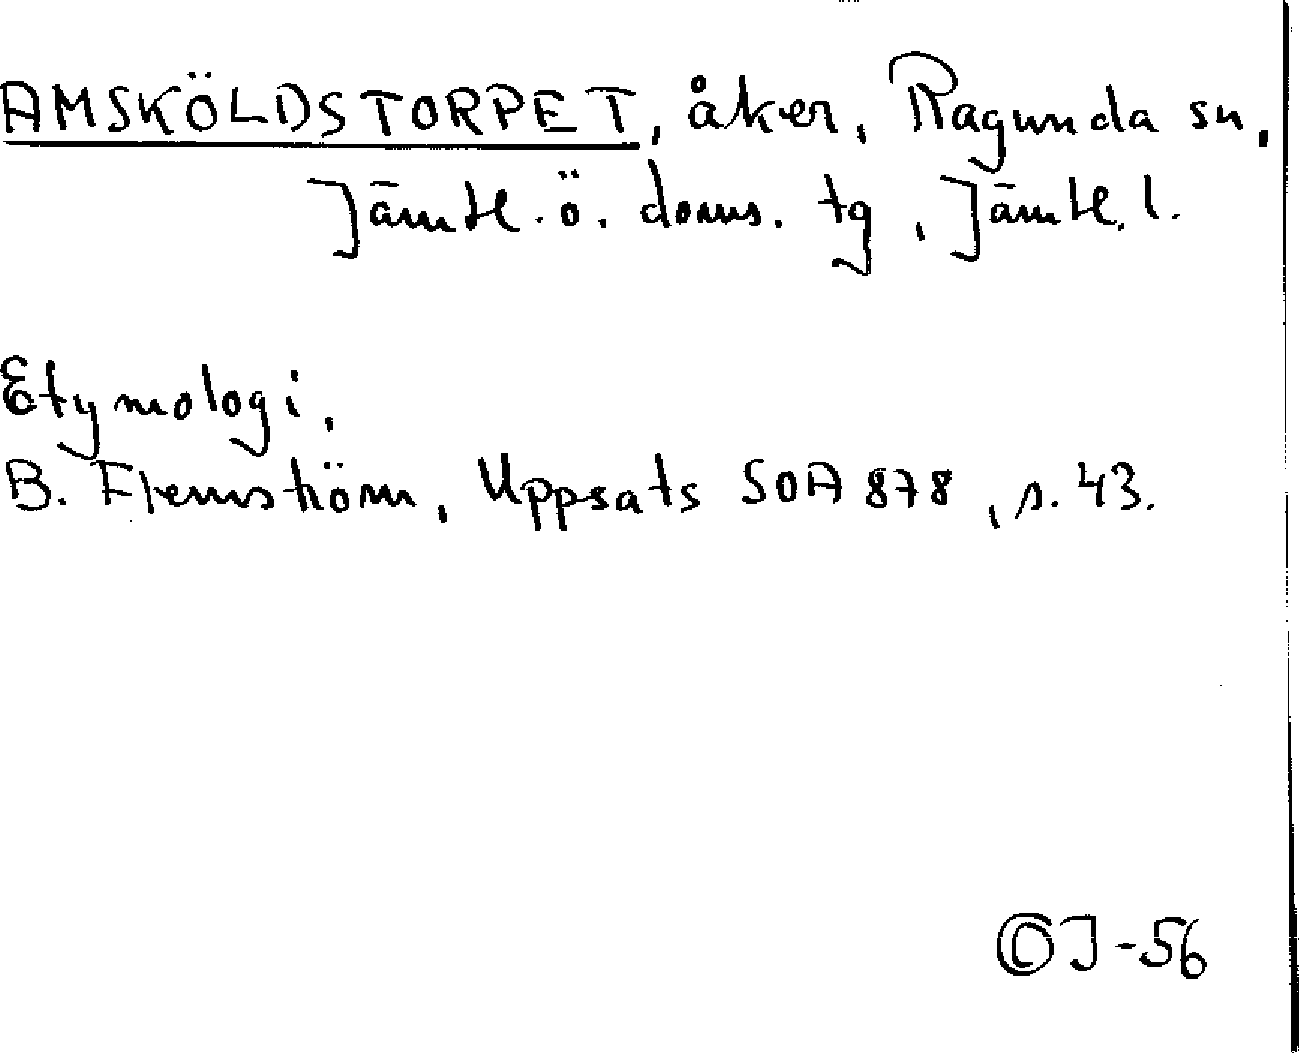 AMSKÖLDSTORPET, åker, Ragunda sn,
Jämtl. ö. doms. tg, Jämtl. l.
Etymologi,
B. Flemström, Uppsats SOA 878, s. 43.
ÖJ-56